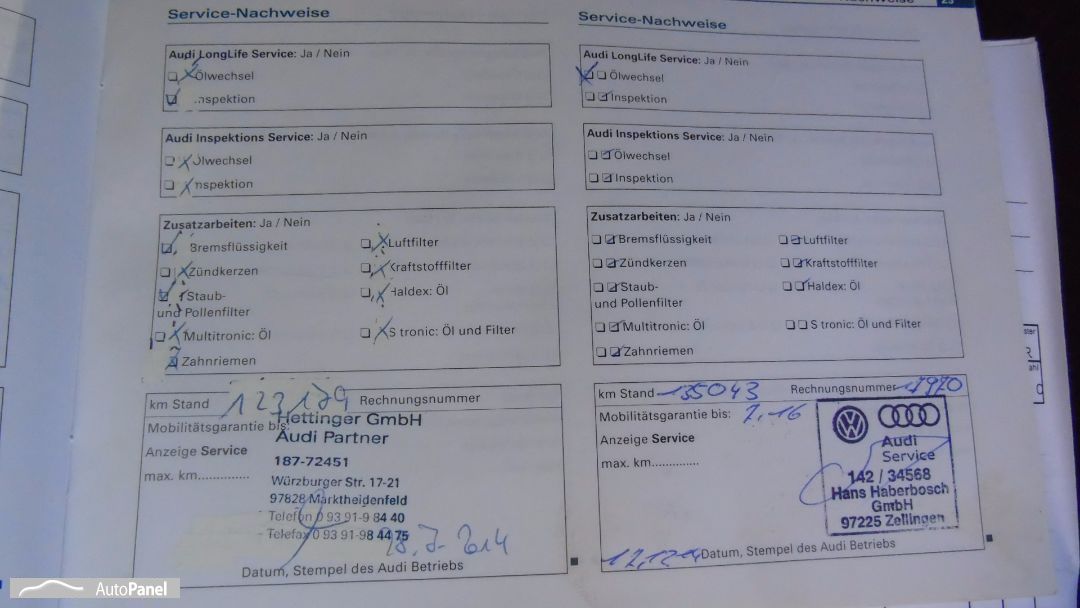 Service-Nachweise
Audi LongLife Service: Ja / Nein
Ölwechsel
Inspektion
Audi Inspektions Service: Ja / Nein
Ölwechsel
Inspektion
Zusatzarbeiten: Ja / Nein
Bremsflüssigkeit
Luftfilter
Zündkerzen
Kraftstofffilter
Staub-
und Pollenfilter
Haldex: Öl
Multitronic: Öl
S tronic: Öl und Filter
Zahnriemen
km Stand 123179 Rechnungsnummer
Mobilitätsgarantie bis:
Anzeige Service
max. km..............
Hettinger GmbH
Audi Partner
187-72451
Würzburger Str. 17-21
97828 Marktheidenfeld
Telefon 0 93 91-9 84 40
Telefax 0 93 91-9 84 4 75
28.7.2014
Datum, Stempel des Audi Betriebs
Service-Nachweise
Audi LongLife Service: Ja / Nein
Ölwechsel
Inspektion
Audi Inspektions Service: Ja / Nein
Ölwechsel
Inspektion
Zusatzarbeiten: Ja / Nein
Bremsflüssigkeit
Luftfilter
Zündkerzen
Kraftstofffilter
Staub-
und Pollenfilter
Haldex: Öl
Multitronic: Öl
S tronic: Öl und Filter
Zahnriemen
km Stand 135043 Rechnungsnummer 17970
Mobilitätsgarantie bis: 7.16
Anzeige Service
max. km..............
Audi
Service
142 / 34568
Hans Haberbosch
GmbH
97225 Zellingen
Datum, Stempel des Audi Betriebs
AutoPanel